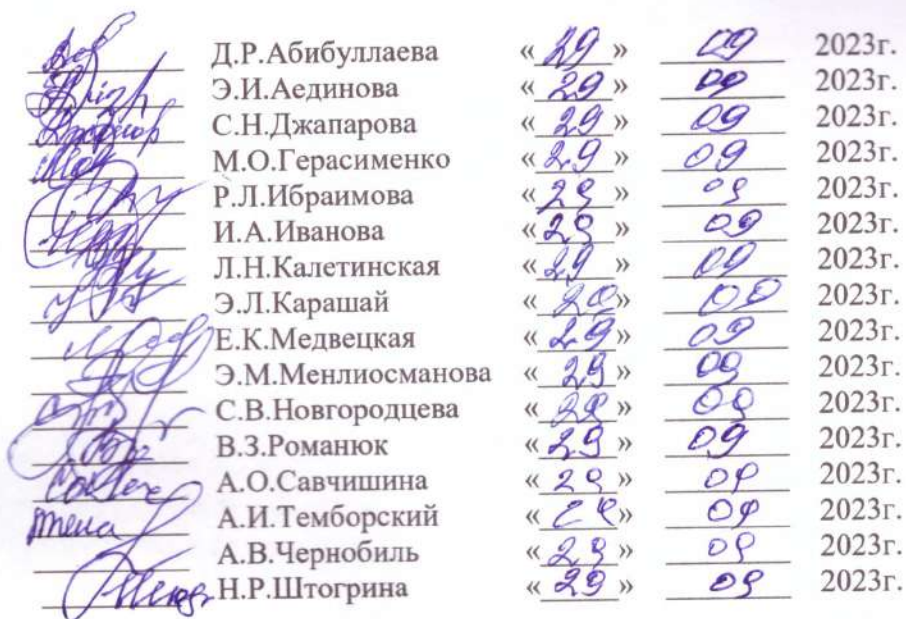 Д.Р.Абибуллаева «29» 09 2023г.
Э.И.Аединова «29» 09 2023г.
С.Н.Джапарова «29» 09 2023г.
М.О.Герасименко «29» 09 2023г.
Р.Л.Ибраимова «29» 09 2023г.
И.А.Иванова «29» 09 2023г.
Л.Н.Калетинская «29» 09 2023г.
Э.Л.Карашай «29» 09 2023г.
Е.К.Медвецкая «29» 09 2023г.
Э.М.Менлиосманова «29» 09 2023г.
С.В.Новгородцева «29» 09 2023г.
В.З.Романюк «29» 09 2023г.
А.О.Савчишина «29» 09 2023г.
А.И.Темборский «29» 09 2023г.
А.В.Чернобиль «29» 09 2023г.
Н.Р.Штогрина «29» 09 2023г.